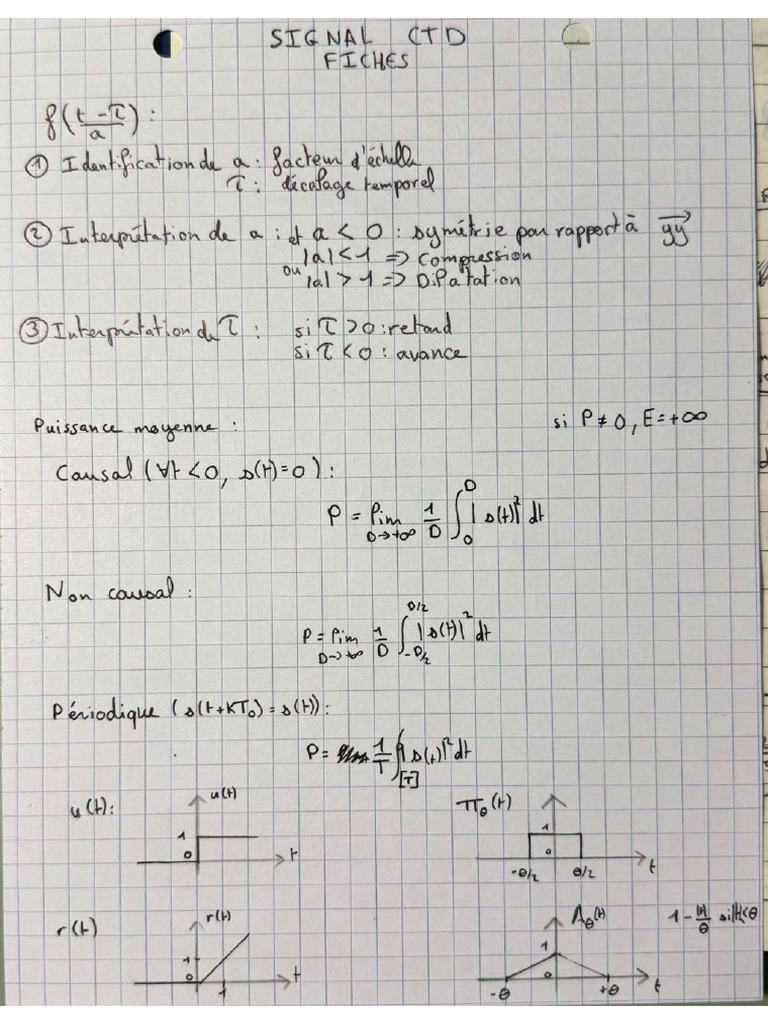 SIGNAL CTD
FICHES
f(t-τ/a) :
① Identification de a : facteur d'échelle
τ : décalage temporel
② Interprétation de a : et a < 0 : symétrie par rapport à yy
|a| < 1 => compression
ou |a| > 1 => Dilatation
③ Interprétation de τ : si τ > 0 : retard
si τ < 0 : avance
Puissance moyenne : si P ≠ 0, E = +∞
Causal (∀t < 0, s(t) = 0) :
P = lim D→+∞ 1/D ∫₀^D |s(t)|² dt
Non causal :
P = lim D→+∞ 1/D ∫_{-D/2}^{D/2} |s(t)|² dt
Périodique (s(t+KT₀) = s(t)) :
P = 1/T ∫_[T] |s(t)|² dt
u(t) : u(t) 1 0 t
Π_θ(t) 1 0 -θ/2 θ/2 t
r(t) r(t) 1 0 1 t
Λ_θ(t) 1 - |t|/θ si |t|<θ
1 0 -θ +θ t